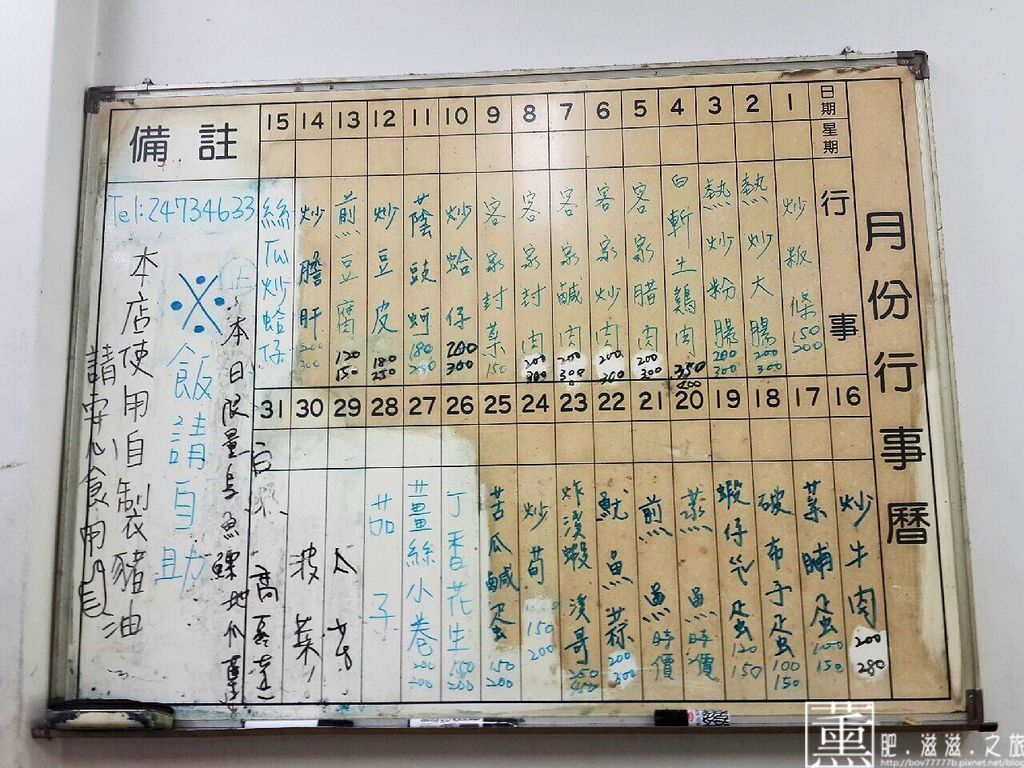 月份行事曆
日期
星期
行事
1 炒粄條 150 200
2 熱炒大腸 200 300
3 熱炒粉腸 200 300
4 白斬土雞肉 350 400
5 客家腊肉 200 300
6 客家炒肉 200 300
7 客家鹹肉 200 300
8 客家封肉 200 300
9 客家封菜 150
10 炒蛤仔 200 300
11 蔭豉蚵 180 250
12 炒豆皮 180 250
13 煎豆腐 120 150
14 炒膽肝 200 300
15 絲瓜炒蛤仔
16 炒牛肉 200 280
17 菜脯蛋 100 150
18 破布子蛋 100 150
19 蝦仔蛋 120 150
20 蒸魚 時價
21 煎魚 時價
22 魷魚蒜 200 300
23 炸溪蝦 溪哥 250
24 炒筍 150 200
25 苦瓜鹹蛋 150 200
26 丁香花生 150 200
27 薑絲小卷 200 200
28 茄子
29
30 菠菜
31
備註
Tel:24734633
本日限量烏魚鰾地瓜葉
※飯請自助
本店使用自製豬油
請安心食用
薰
肥.滋滋.之旅
http://bov77777b.pixnet.net/blog